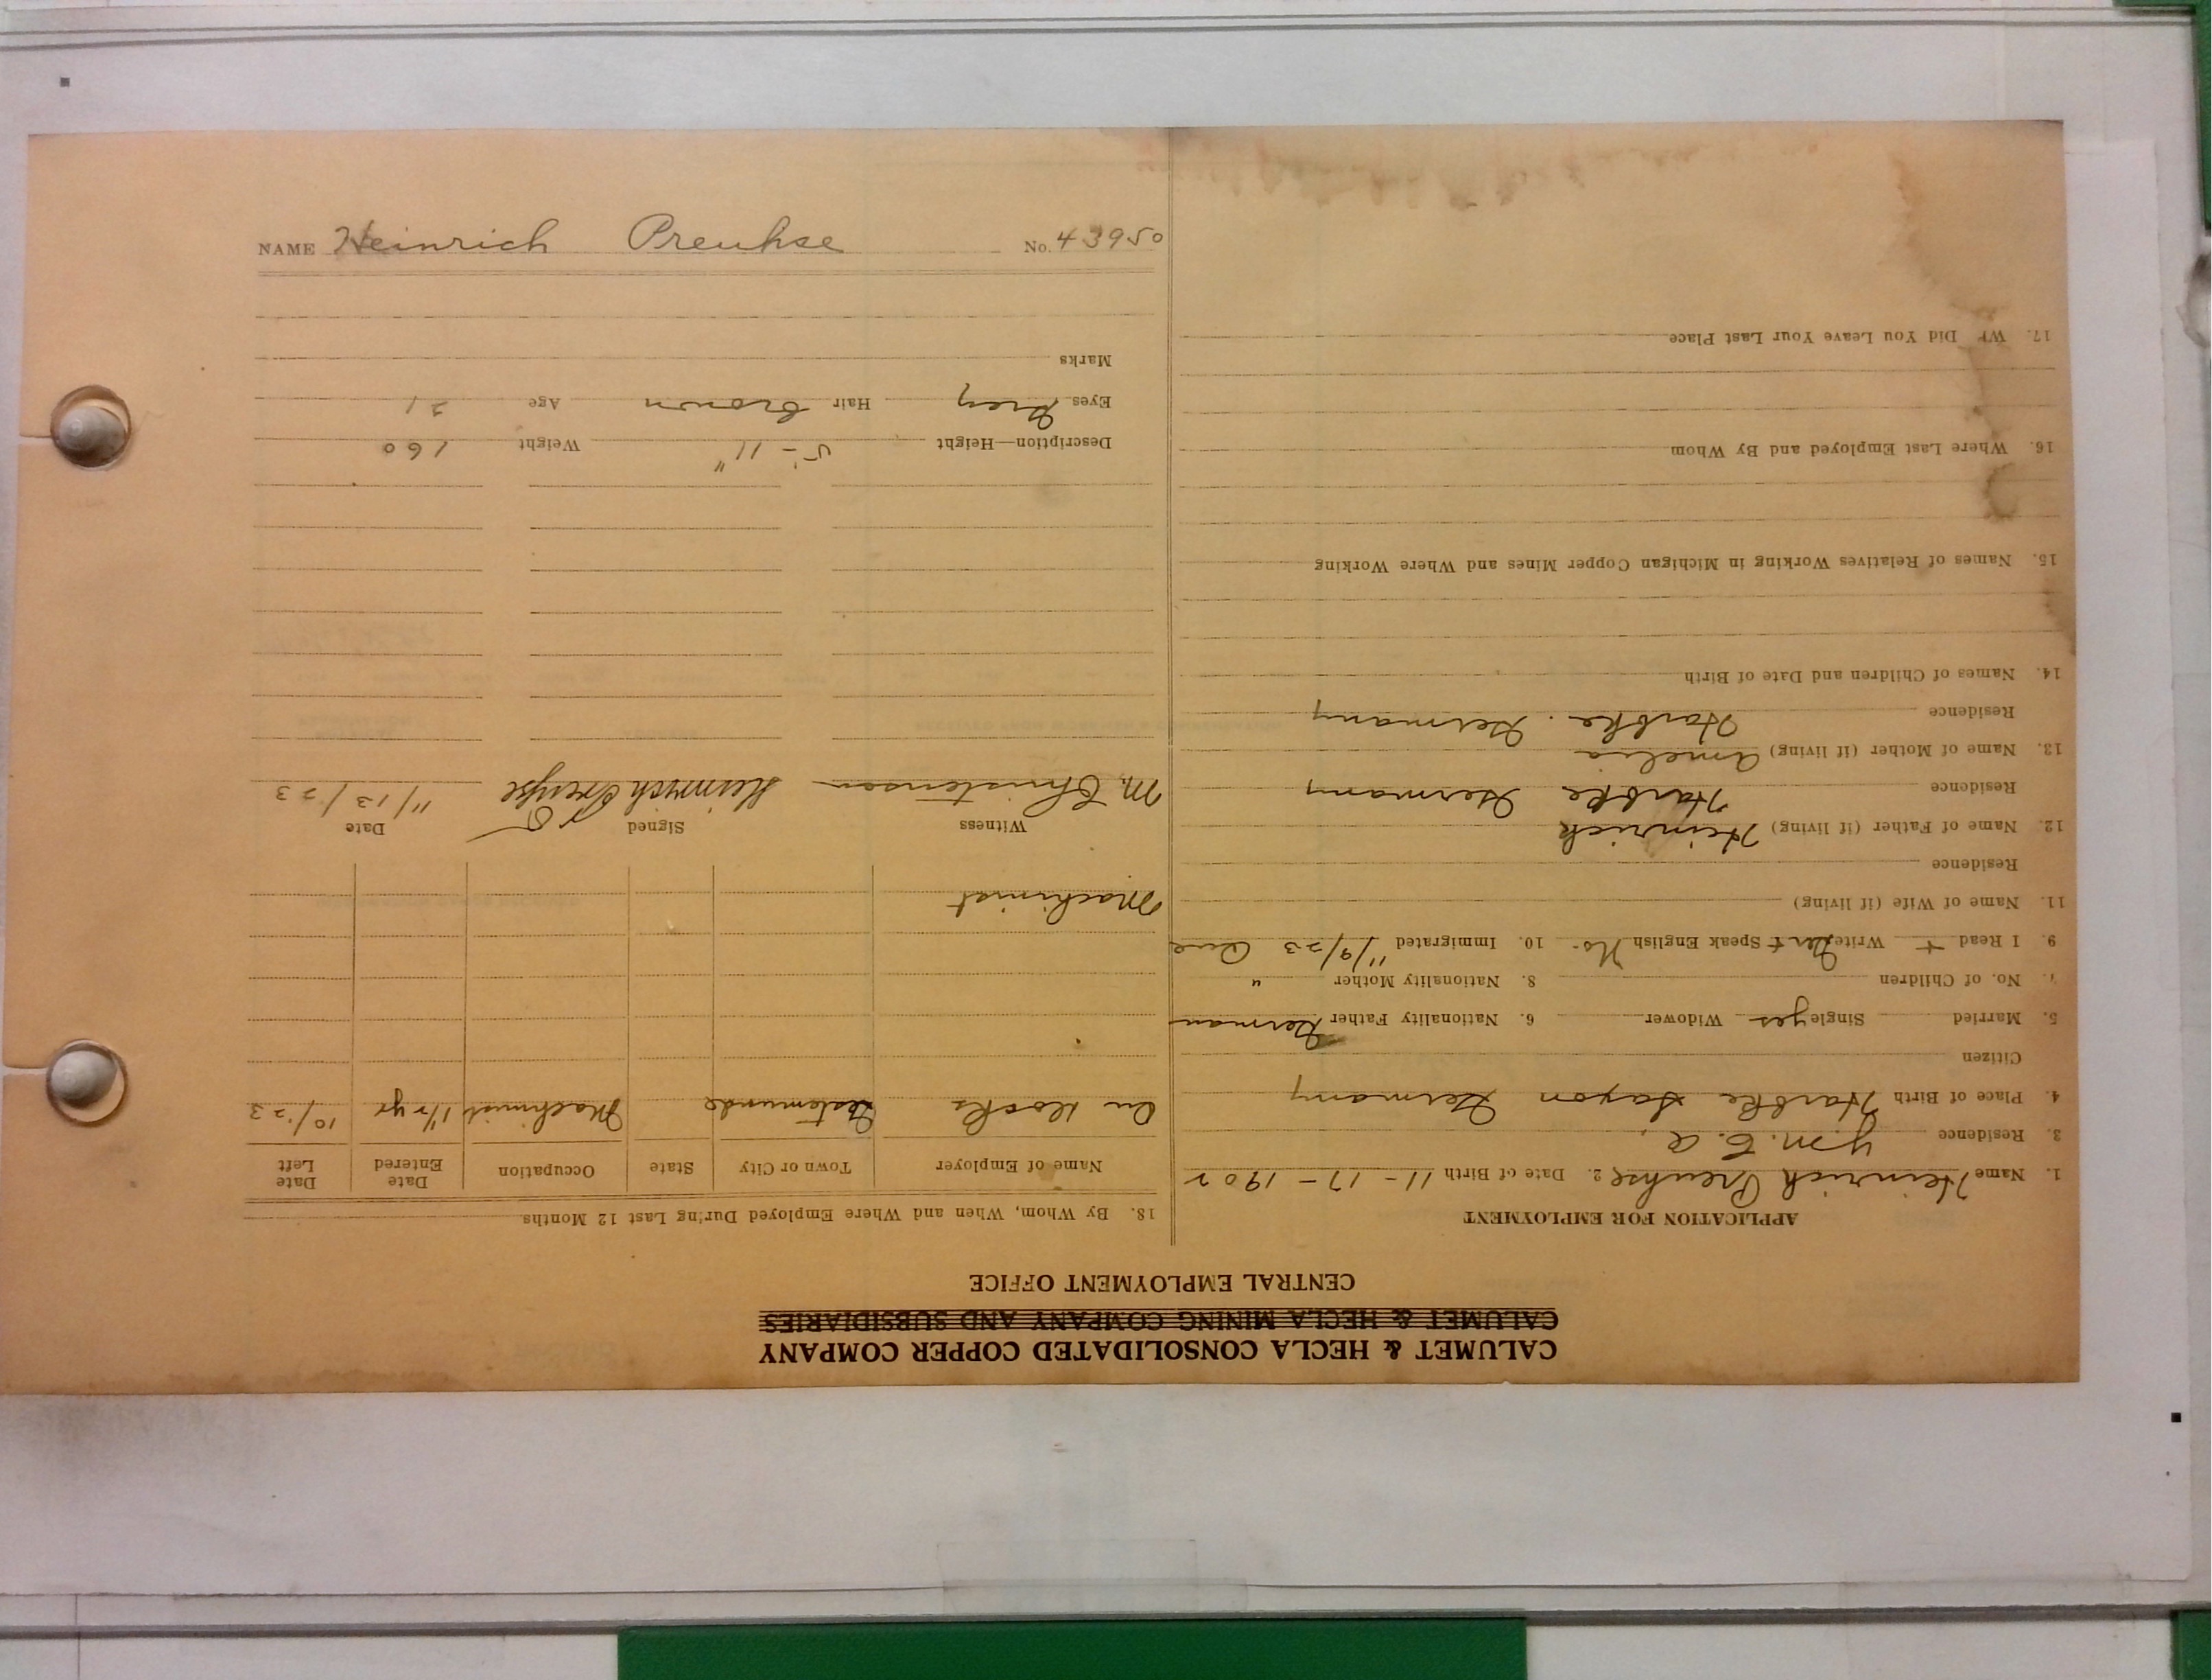 NAME Heinrich Preuhse No. 43950
CALUMET & HECLA CONSOLIDATED COPPER COMPANY
CALUMET & HECLA MINING COMPANY AND SUBSIDIARIES
CENTRAL EMPLOYMENT OFFICE
APPLICATION FOR EMPLOYMENT
1. Name Heinrich Preuhse 2. Date of Birth 11-17-1902
3. Residence Y.M.C.A.
4. Place of Birth Harbke Saxon Germany
Citizen
5. Married Single yes Widower 6. Nationality Father German
7. No. of Children 8. Nationality Mother "
9. I Read + Write Speak English No. 10. Immigrated 11/9/23
11. Name of Wife (if living)
Residence
12. Name of Father (if living) Heinrich
Residence Harbke Germany
13. Name of Mother (if living) Amelia
Residence Harbke. Germany
14. Names of Children and Date of Birth
15. Names of Relatives Working in Michigan Copper Mines and Where Working
16. Where Last Employed and By Whom
17. Did You Leave Your Last Place
18. By Whom, When and Where Employed During Last 12 Months
Name of Employer Town or City State Occupation Date Entered Date Left
On Docks Machinist 1 1/2 yr 10/23
Machinist
Witness Signed Date
M. Christensen Heinrich Preuhse 11/13/23
Description—Height 5'-11" Weight 160
Eyes Grey Hair Brown Age 21
Marks